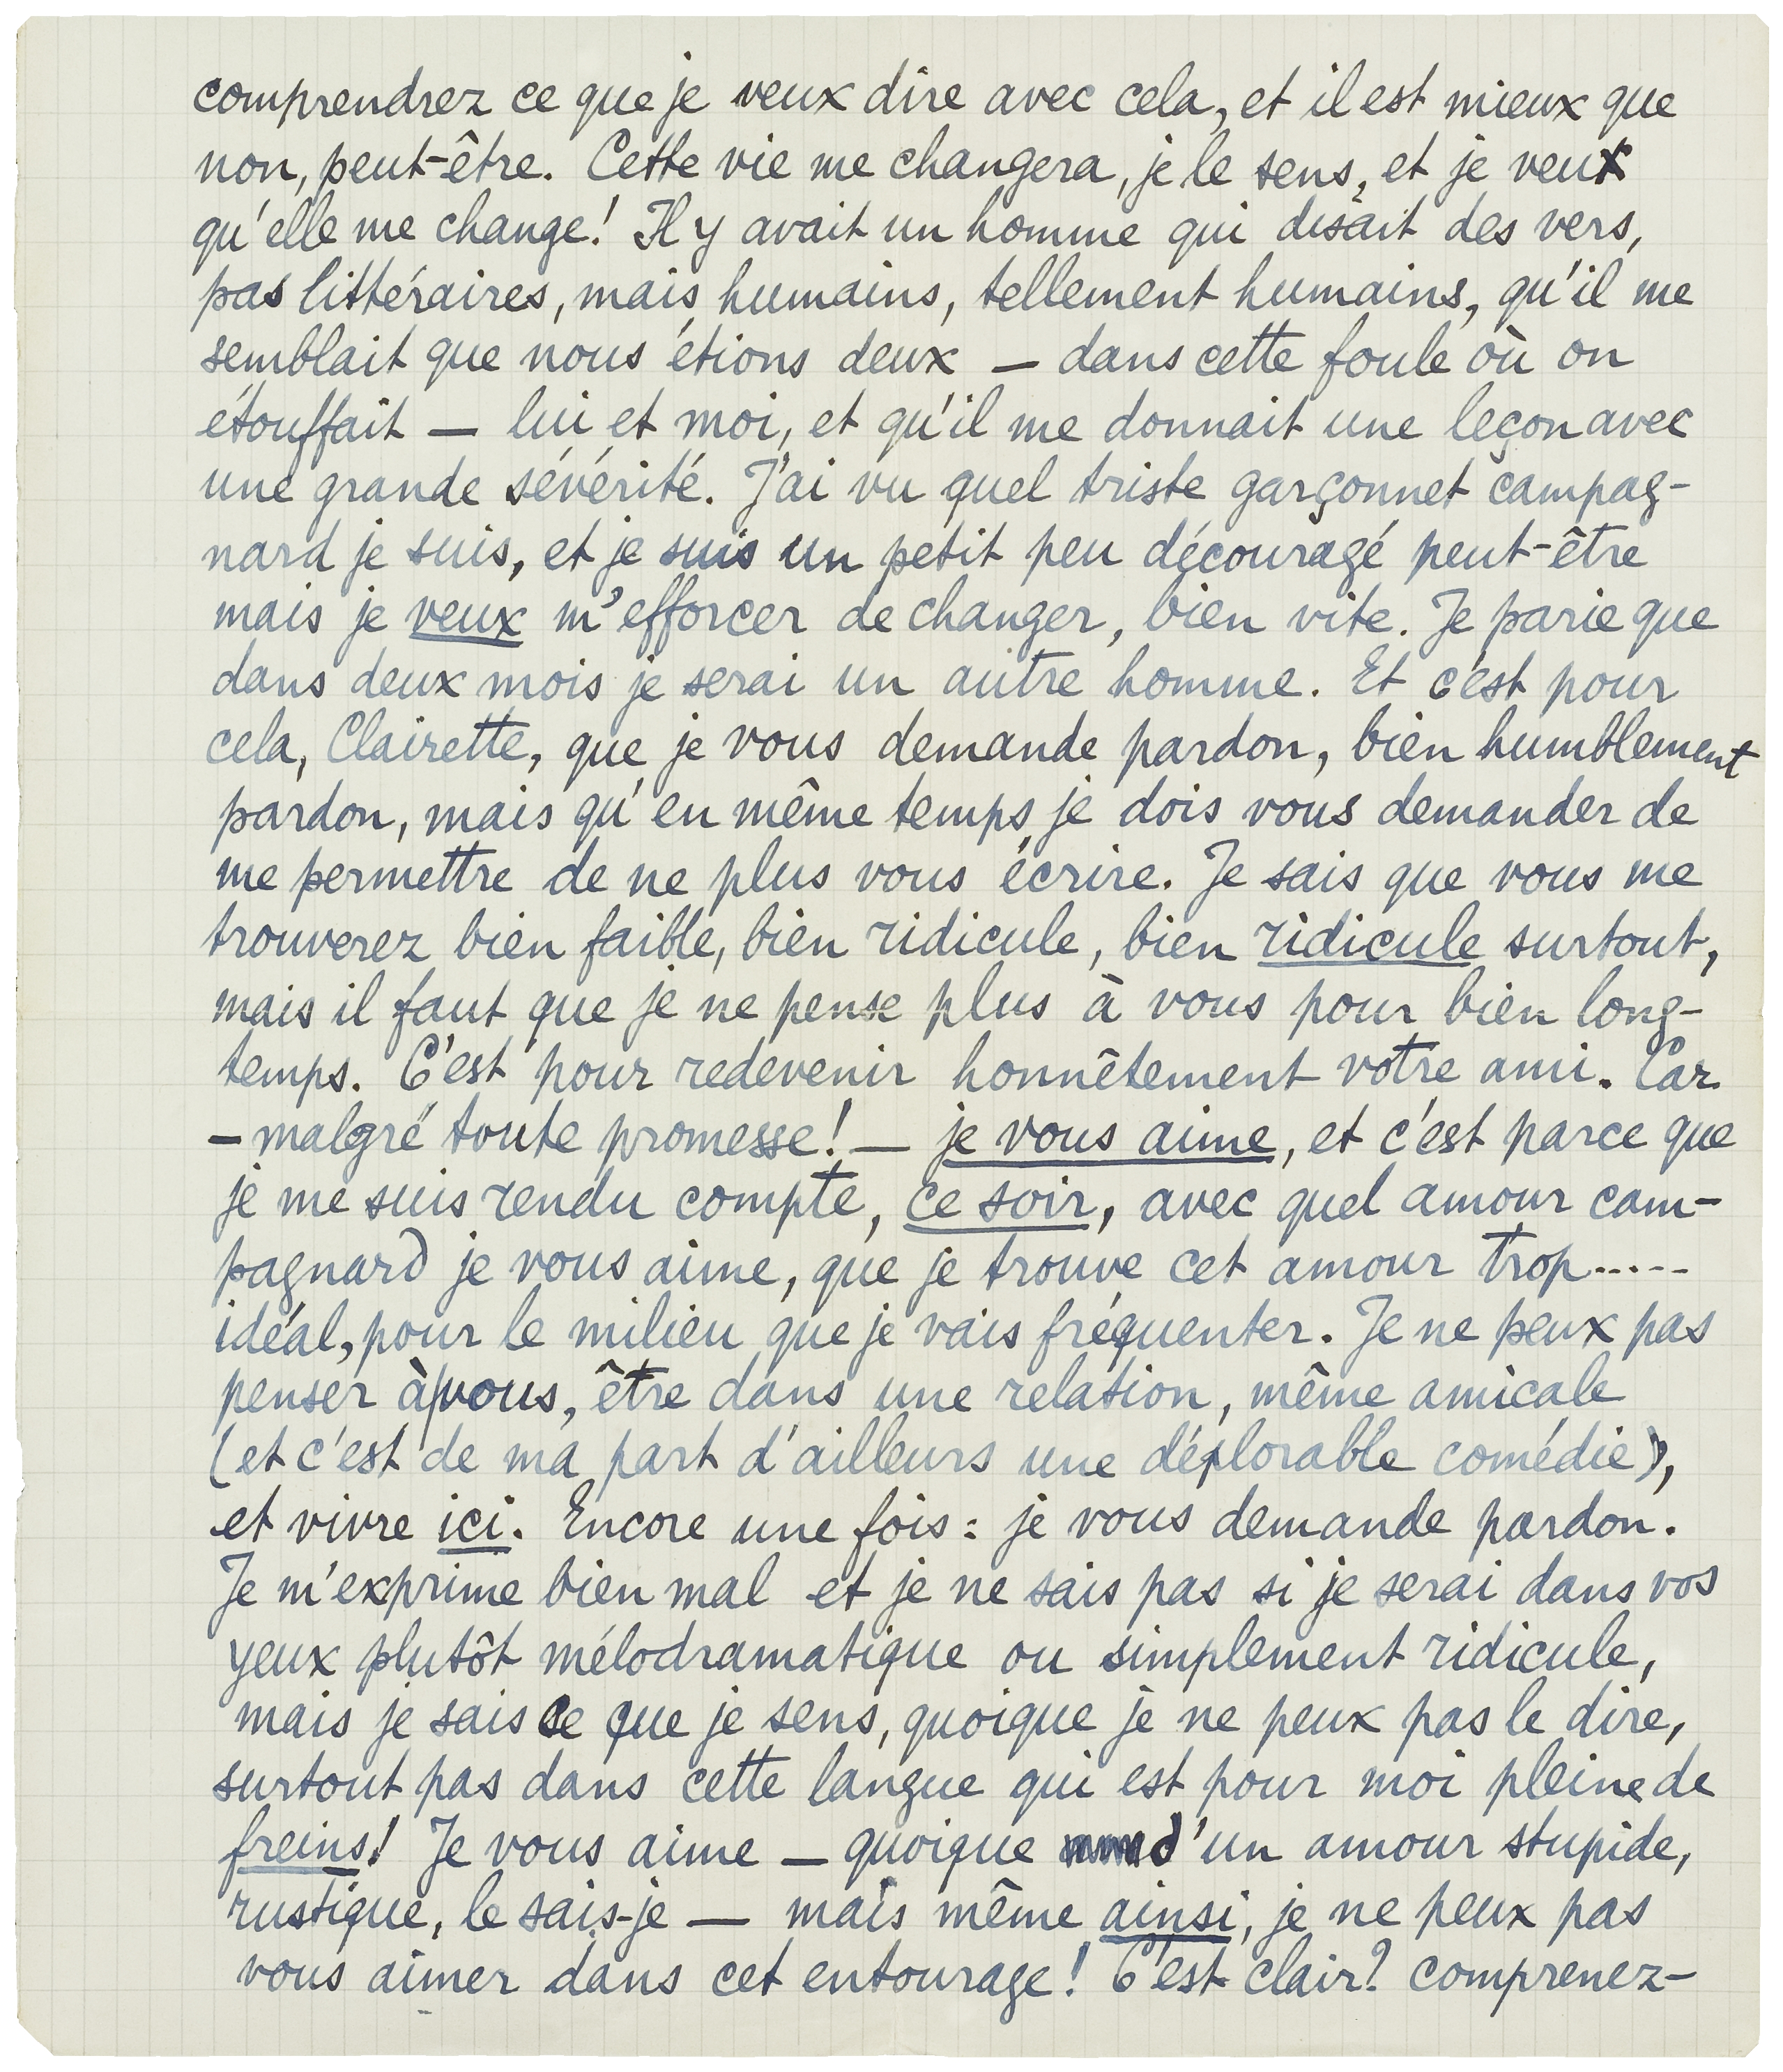 comprendrez ce que je veux dire avec cela, et il est mieux que
non, peut-être. Cette vie me changera, je le sens, et je veux
qu'elle me change! Il y avait un homme qui disait des vers,
pas littéraires, mais humains, tellement humains, qu'il me
semblait que nous étions deux — dans cette foule où on
étouffait — lui et moi, et qu'il me donnait une leçon avec
une grande sévérité. J'ai vu quel triste garçonnet campag-
nard je suis, et je suis un petit peu découragé peut-être
mais je veux m'efforcer de changer, bien vite. Je parie que
dans deux mois je serai un autre homme. Et c'est pour
cela, Clairette, que je vous demande pardon, bien humblement
pardon, mais qu'en même temps je dois vous demander de
me permettre de ne plus vous écrire. Je sais que vous me
trouverez bien faible, bien ridicule, bien ridicule surtout,
mais il faut que je ne pense plus à vous pour bien long-
temps. C'est pour redevenir honnêtement votre ami. Car
— malgré toute promesse! — je vous aime, et c'est parce que
je me suis rendu compte, ce soir, avec quel amour cam-
pagnard je vous aime, que je trouve cet amour trop.....
idéal, pour le milieu que je vais fréquenter. Je ne peux pas
penser à vous, être dans une relation, même amicale
(et c'est de ma part d'ailleurs une déplorable comédie),
et vivre ici. Encore une fois: je vous demande pardon.
Je m'exprime bien mal et je ne sais pas si je serai dans vos
yeux plutôt mélodramatique ou simplement ridicule,
mais je sais ce que je sens, quoique je ne peux pas le dire,
surtout pas dans cette langue qui est pour moi pleine de
freins! Je vous aime — quoique d'un amour stupide,
rustique, le sais-je — mais même ainsi, je ne peux pas
vous aimer dans cet entourage! C'est clair? comprenez-